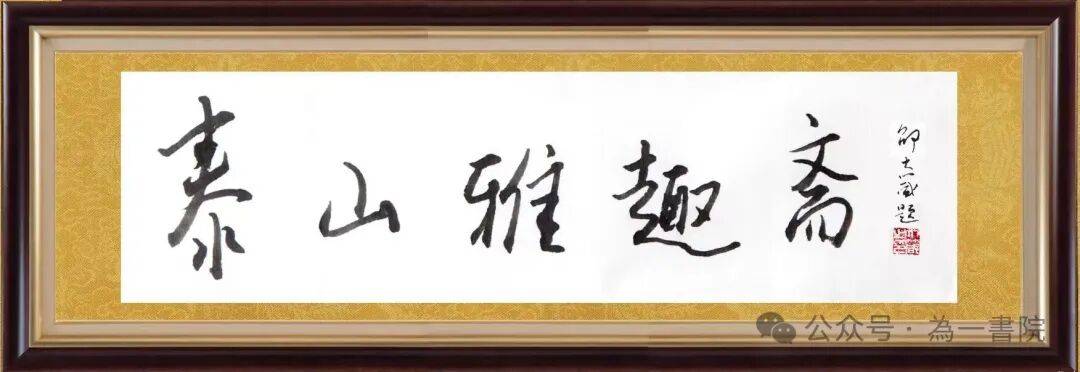 泰山雅趣斋
邵大箴题
公众号·為一書院